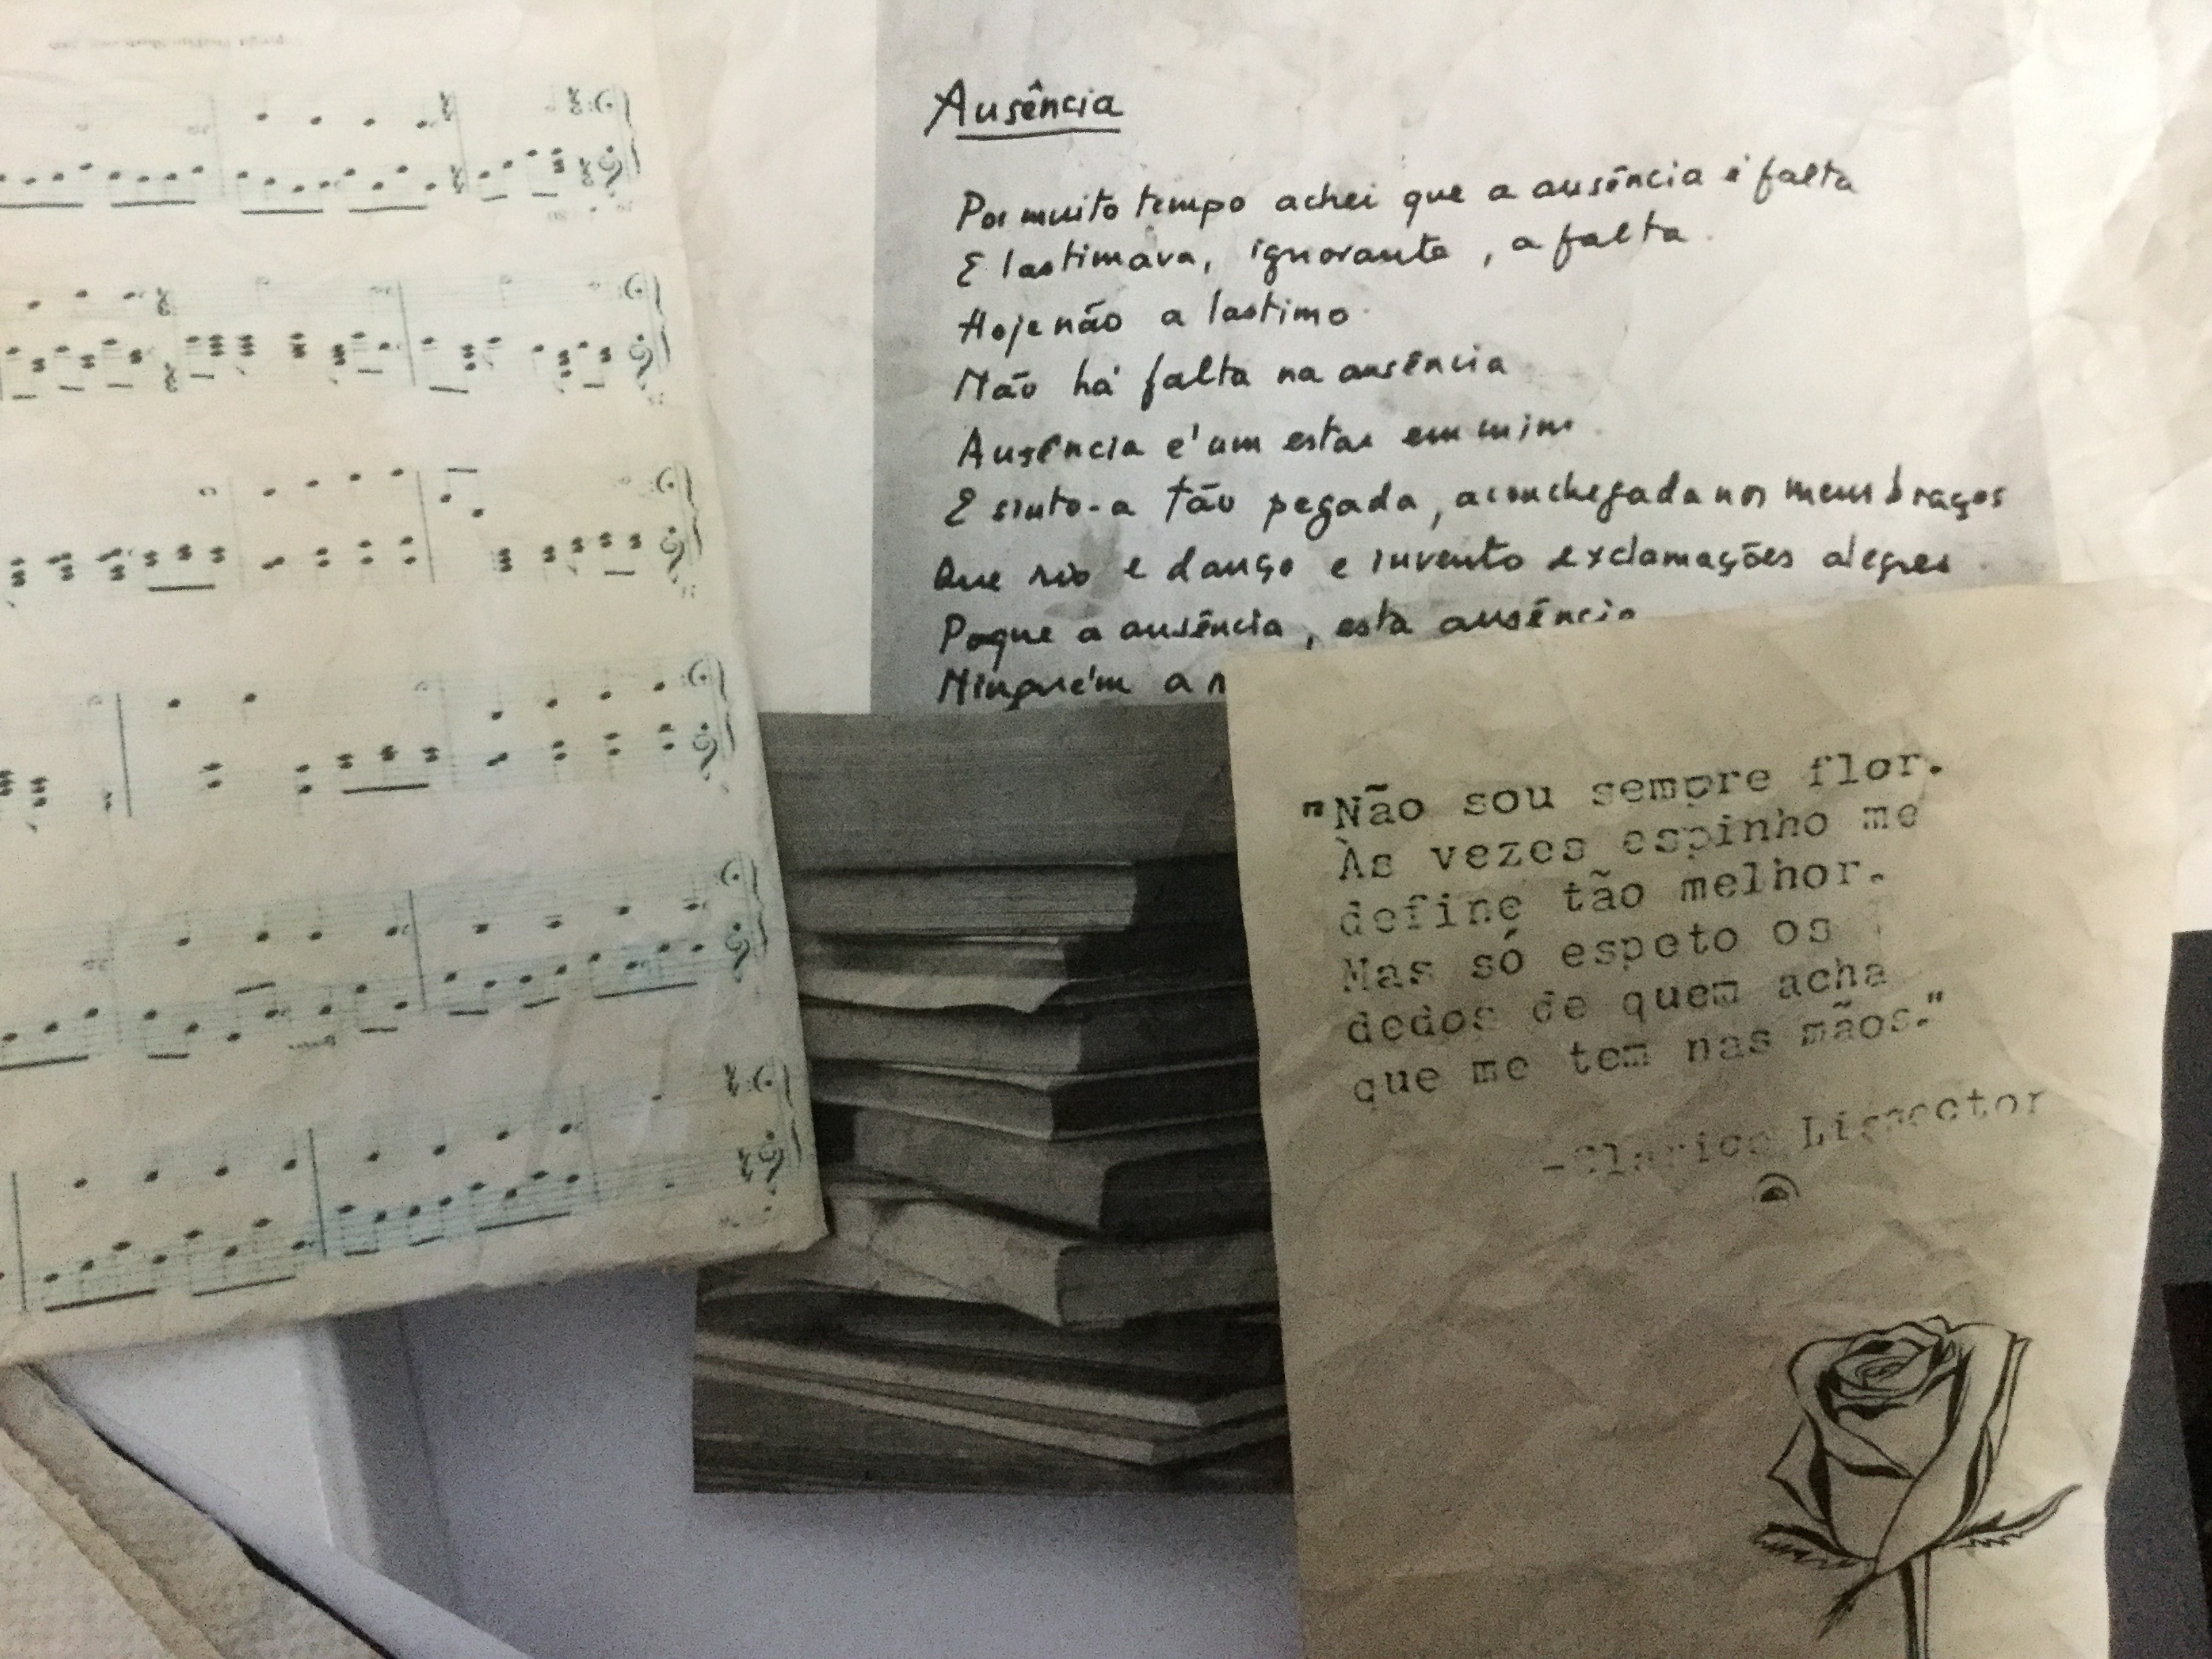 Ausência
Por muito tempo achei que a ausência é falta
E lastimava, ignorante, a falta.
Hoje não a lastimo.
Não há falta na ausência
Ausência é um estar em mim.
E sinto-a tão pegada, aconchegada nos meus braços
Que rio e danço e invento exclamações alegres.
Poque a ausência, esta ausência
Ninguém a
"Não sou sempre flor.
Às vezes espinho me
define tão melhor.
Mas só espeto os
dedos de quem acha
que me tem nas mãos."
-Clarice Lispector